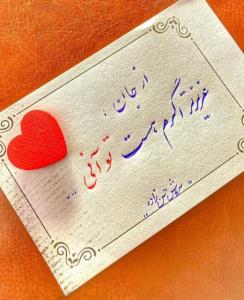 از جان ،
عزیزتر اگرم هست تو آنی ...